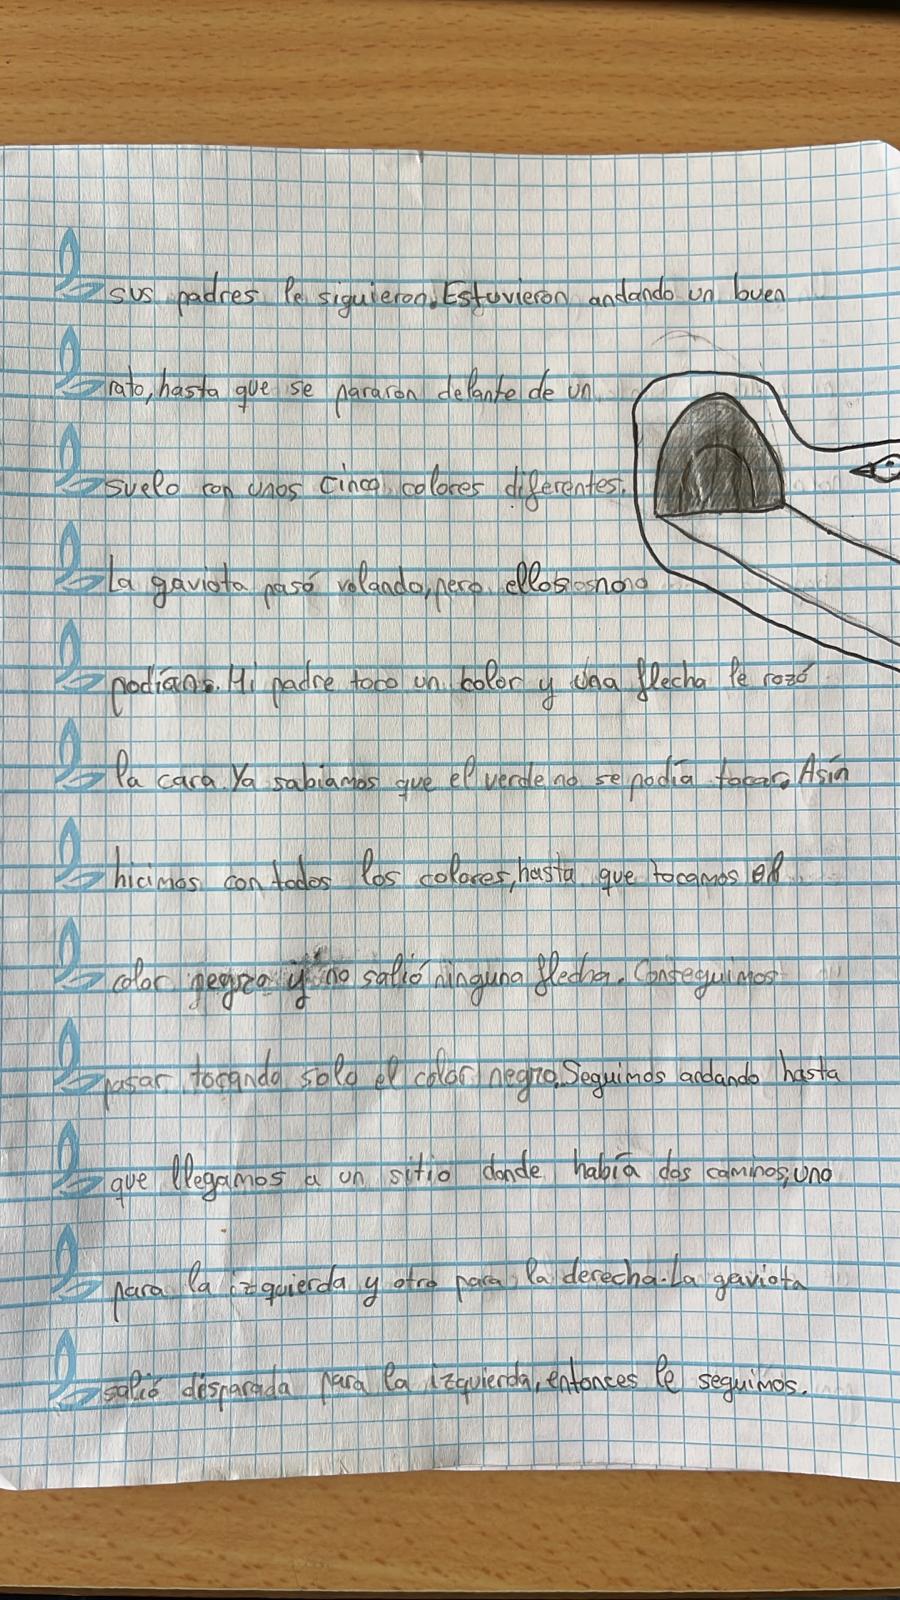 sus padres le siguieron. Estuvieron andando un buen
rato, hasta que se pararon delante de un
suelo con unos cinco colores diferentes.
La gaviota pasó volando, pero ellos no
podían. Mi padre toco un color y una flecha le rozó
la cara. Ya sabiamos que el verde no se podía tocar. Asín
hicimos con todos los colores, hasta que tocamos el
color negro y no salió ninguna flecha. Conseguimos
pasar tocando solo el color negro. Seguimos andando hasta
que llegamos a un sitio donde había dos caminos, uno
para la izquierda y otro para la derecha. La gaviota
salió disparada para la izquierda, entonces le seguimos.